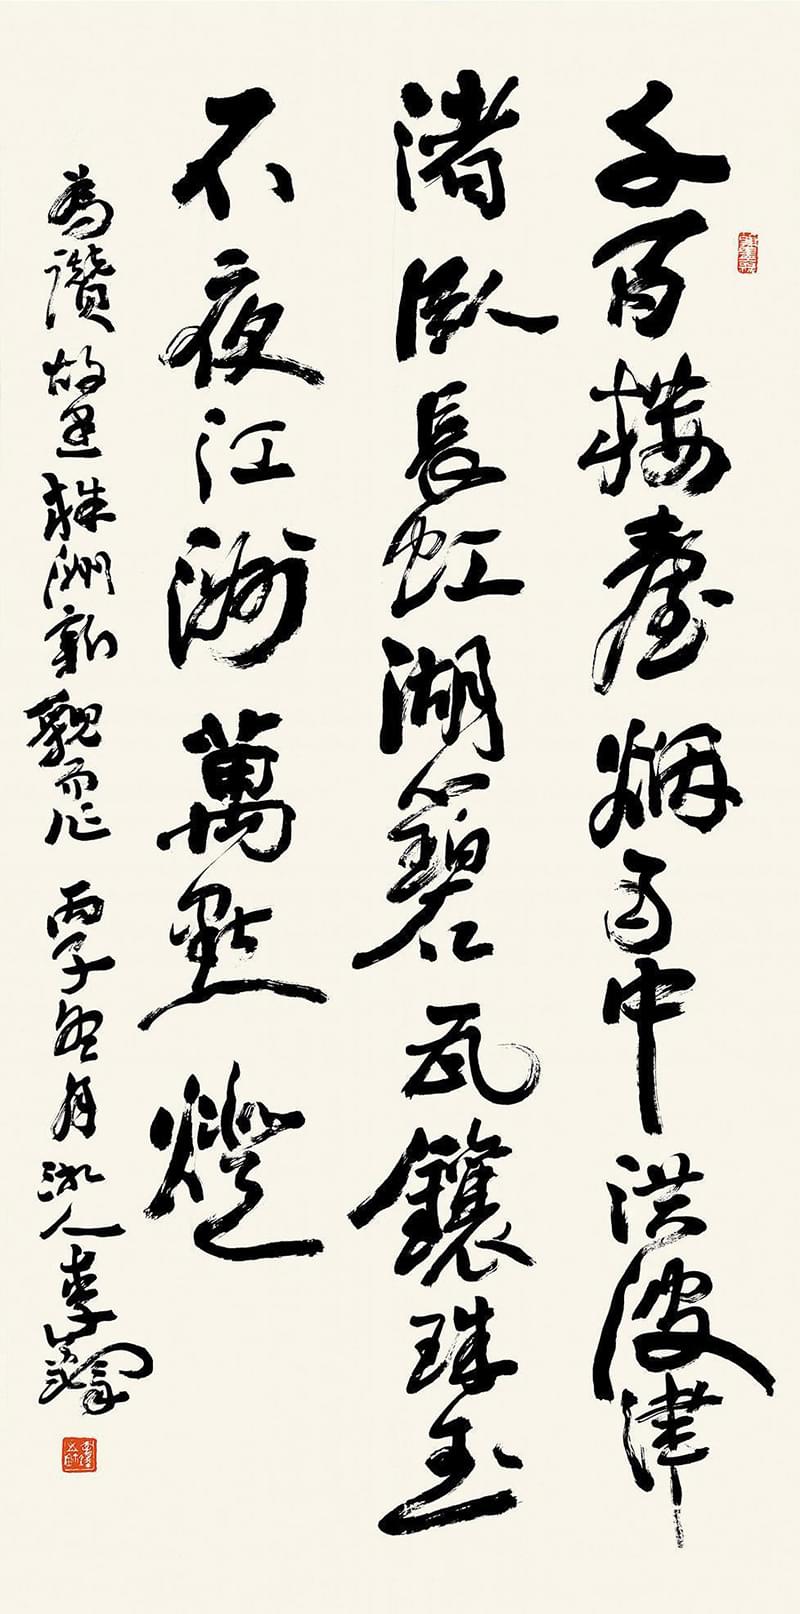 千百樓臺烟雨中洪波津
渚臥長虹湖心碧瓦鑲珠玉
不夜江洲萬點燈
為讚故株洲新貌而作 丙子冬月 湘人李鐸